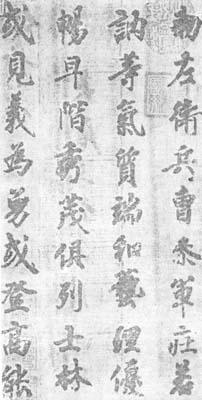 勅左衛兵曹參軍莊若
訥等氣質端和藝理優
暢早階秀茂俱列士林
或見義為勇或登高能